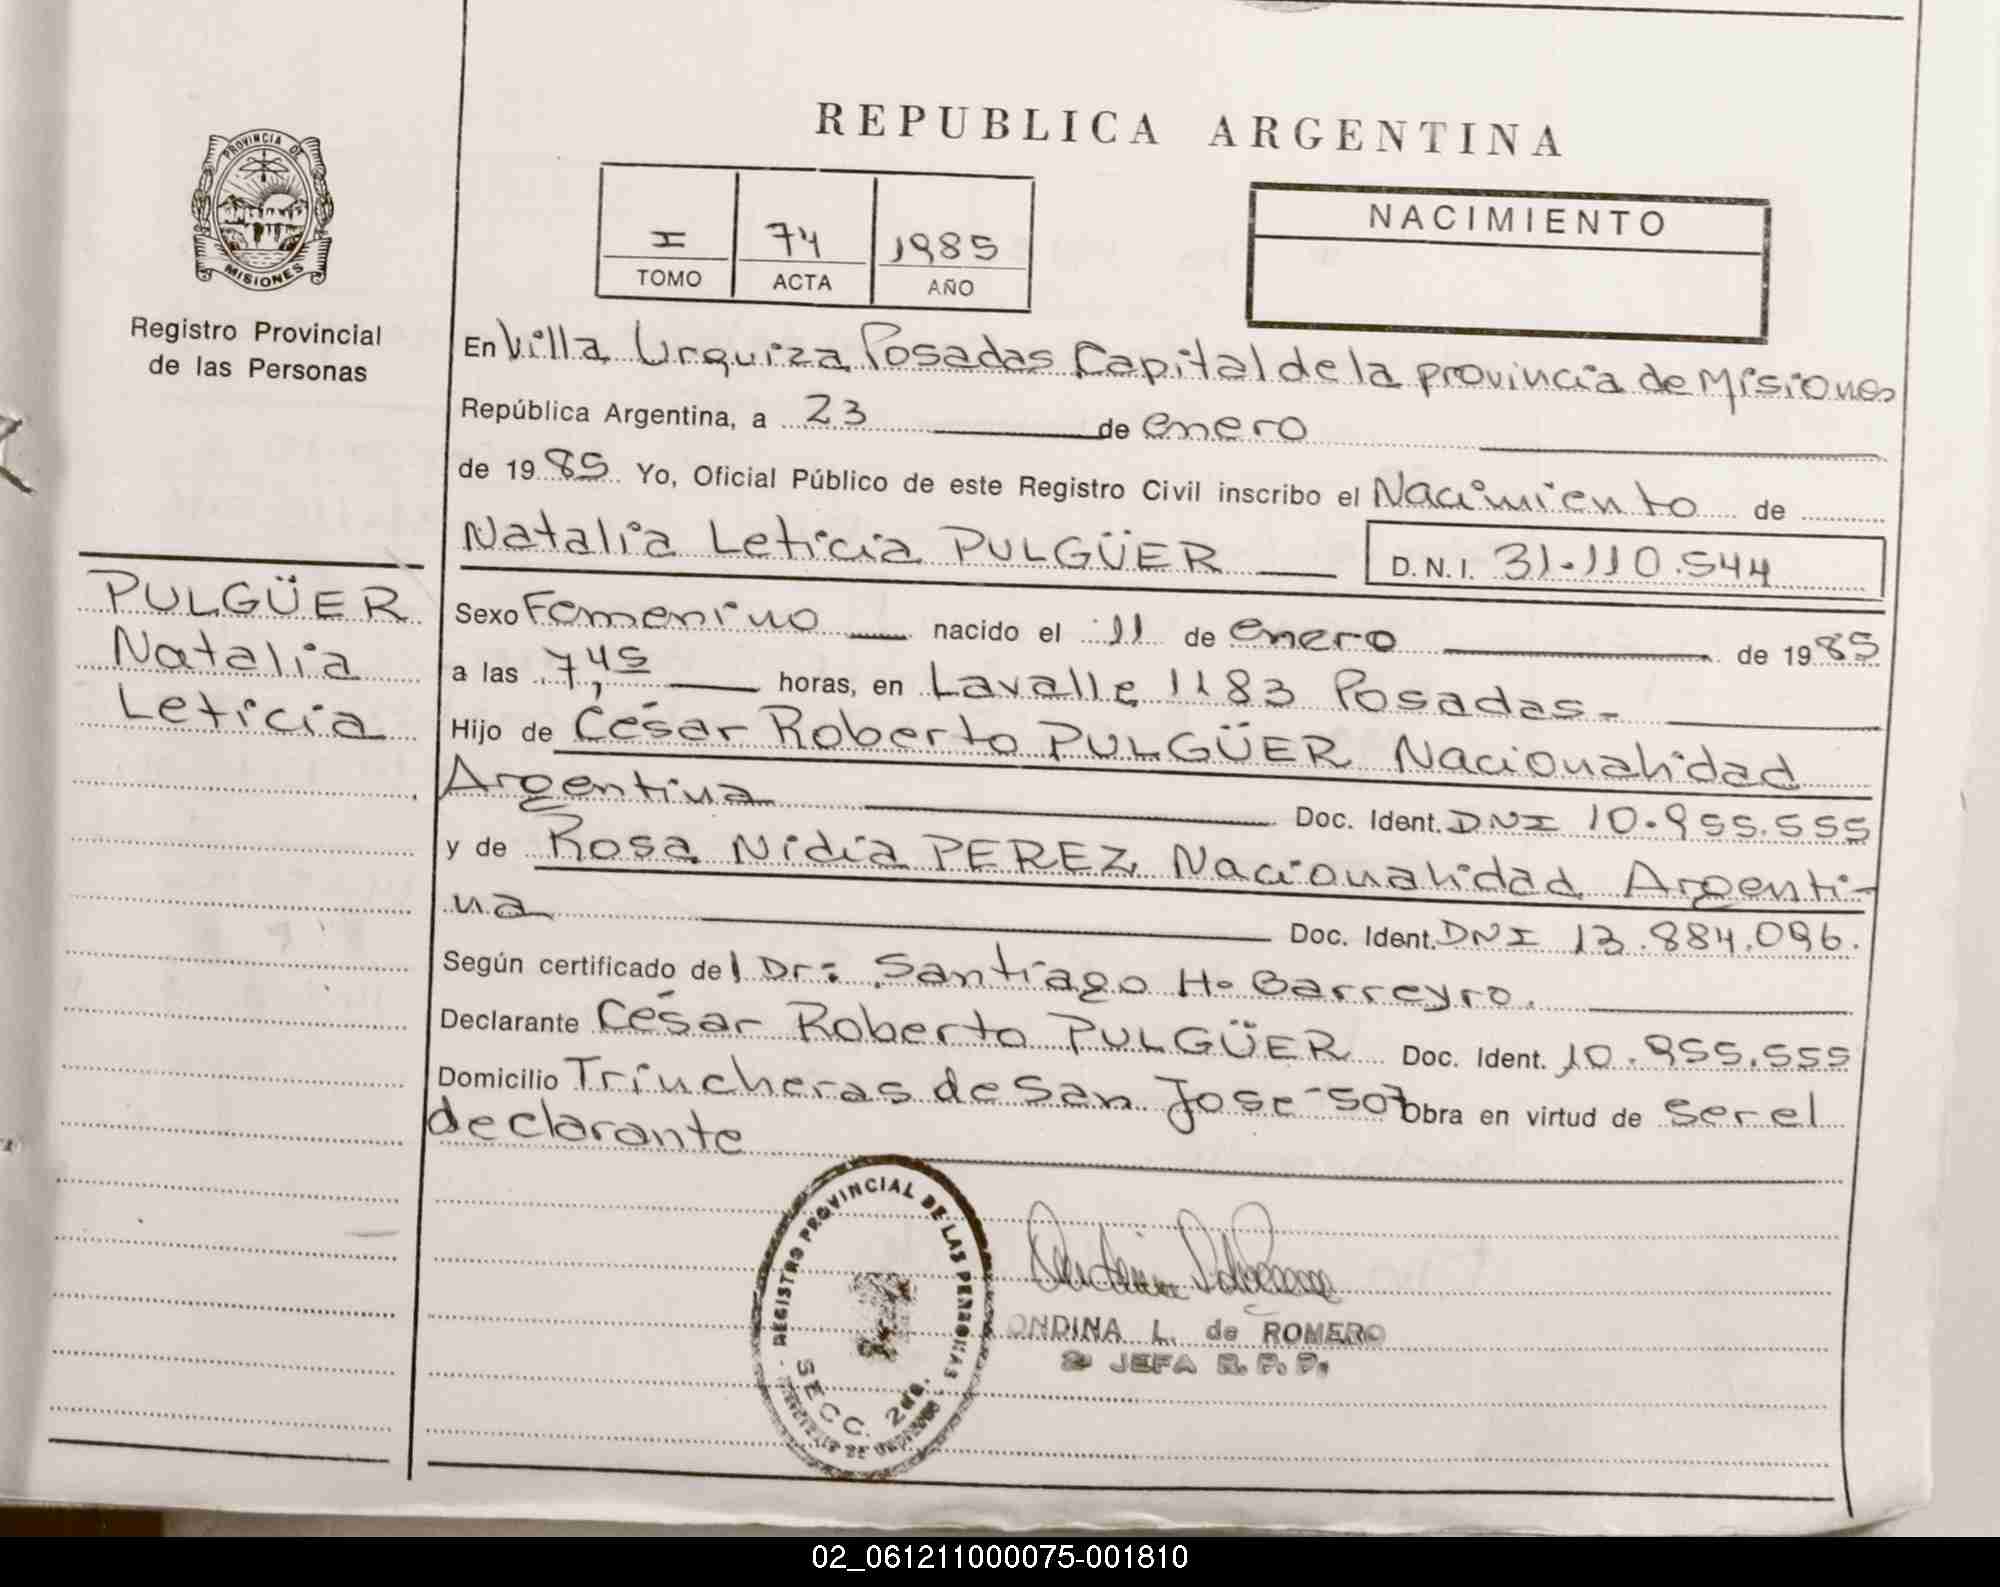 REPUBLICA ARGENTINA
PROVINCIA DE
MISIONES
Registro Provincial
de las Personas
I 74 1985
TOMO ACTA AÑO
NACIMIENTO
En Villa Urquiza Posadas Capital de la provincia de Misiones
República Argentina, a 23 de enero
de 1985 Yo, Oficial Público de este Registro Civil inscribo el Nacimiento de
Natalia Leticia PULGÜER D.N.I. 31.110.544
PULGÜER
Natalia
Leticia
Sexo Femenino nacido el 11 de enero de 1985
a las 7,45 horas, en Lavalle 1183 Posadas-
Hijo de César Roberto PULGÜER Nacionalidad
Argentina Doc. Ident. DNI 10.955.555
y de Rosa Nidia PEREZ Nacionalidad Argenti-
na Doc. Ident. DNI 13.884.096.
Según certificado del Dr: Santiago H. Barreyro.
Declarante César Roberto PULGÜER Doc. Ident. 10.955.555
Domicilio Trincheras de San José 507 Obra en virtud de ser el
declarante
REGISTRO PROVINCIAL DE LAS PERSONAS
SECC. 2da.
ONDINA L. de ROMERO
JEFA R. P. P.
02_061211000075-001810